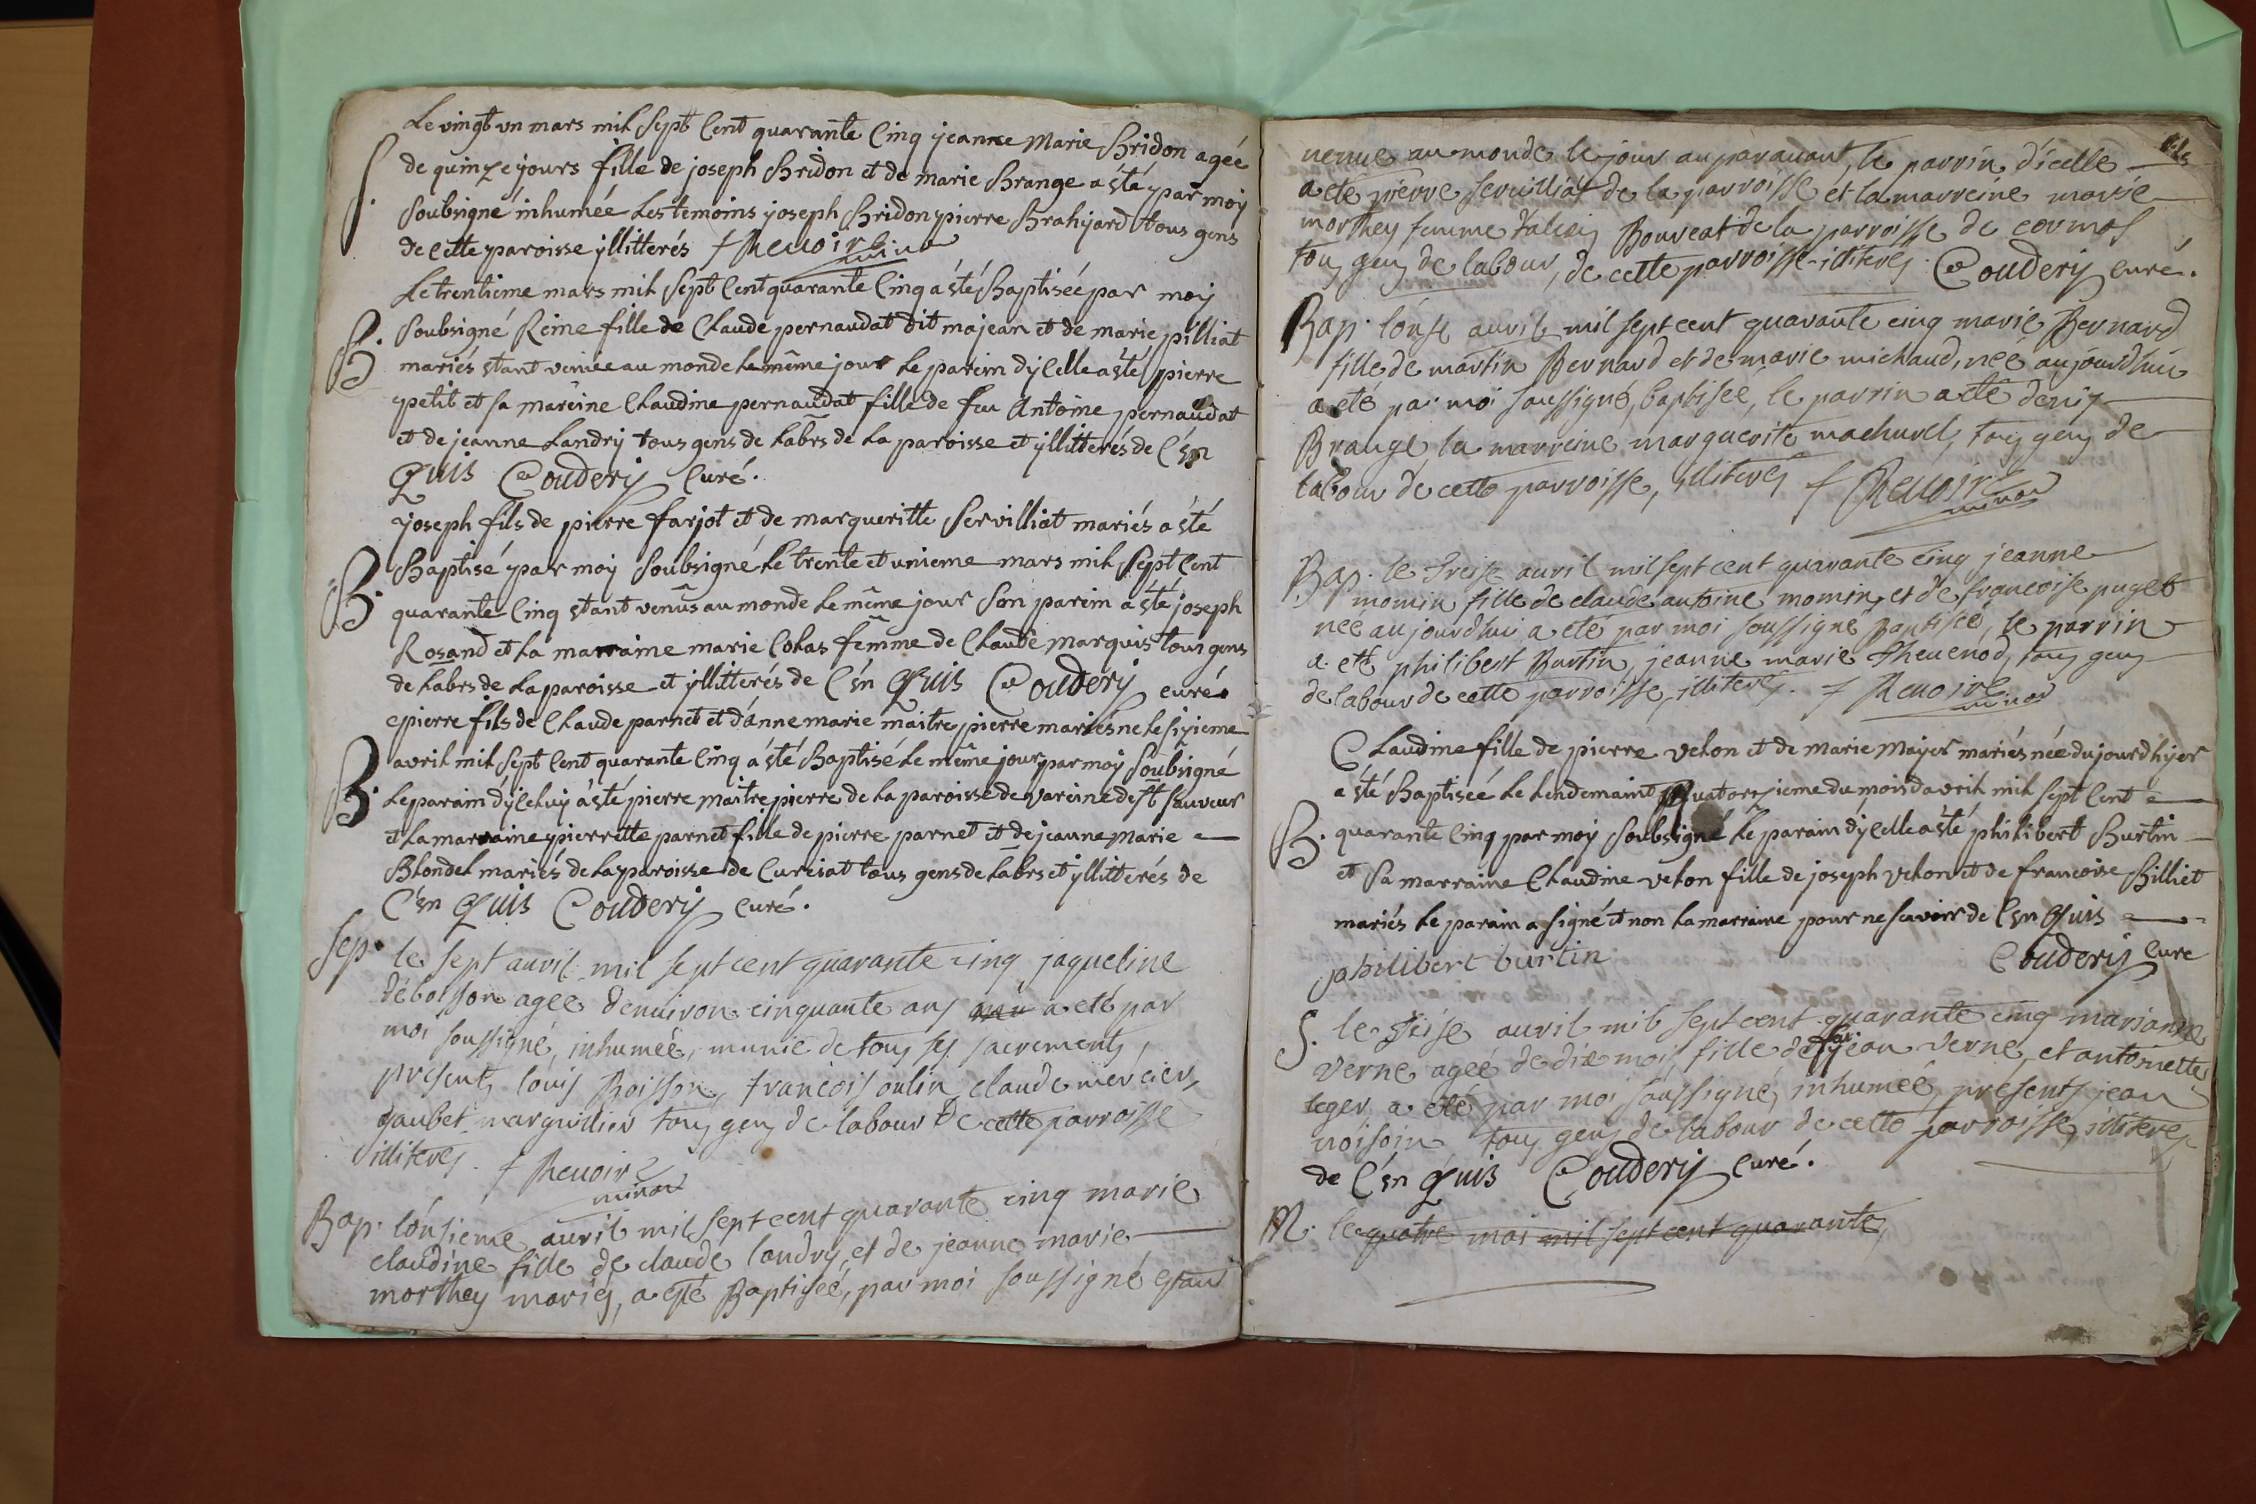 Le vingt un mars mil Sept Cent quarante Cinq jeanne Marie Bridon ageé
S. de quinze jours fille de joseph Bridon et de marie Brange a été par moy
Soubsigné inhumée Les temoins joseph Bridon pierre Brahyard tous gens
de Cette paroisse yllitterés f Renoire minor
Le trentieme mars mil Sept Cent quarante Cinq a été Baptiseé par moy
B. Soubsigné Reine fille de Claude pernaudat dit majean et de marie pilliat
mariés étant venüe au monde le même jour Le parein dycelle a été pierre
petit et sa mareine Claudine pernaudat fille de feu Antoine pernaudat
et de jeanne Landry tous gens de Labrs de La paroisse et yllitterés de C'en
Quis Coudery Curé.
joseph fils de pierre farjot et de marqueritte Servilliat mariés a été
B. Baptisé par moy Soubsigné Le trente et unieme mars mil Sept Cent
quarante Cinq étant venûs au monde Le même jour Son parein a été joseph
Rosand et La marraine marie Colas fêmme de Claude marquis tous gens
de Labrs de La paroisse et yllitterés de C'en Quis Coudery curé
pierre fils de Claude parnet et d'anne marie maitrepierre mariés ne Le sixieme
B. avril mil Sept Cent quarante Cinq a été Baptisé Le même jour par moy Soubsigné
Le parain dyceluy a été pierre maitrepierre de La paroisse de vareine de St Sauveur
et La marraine pierrette parnet fille de pierre parnet et de jeanne Marie
Blondel mariés de La paroisse de Curciat tous gens de Labrs et yllitterés de
C'en Quis Coudery curé.
Sep. le sept avril mil sept cent quarante cinq jaqueline
deboisson agee denviron cinquante ans a eté par
moi soussigné, inhumée, munie de tous ses sacrements,
presents loüis Boisson, francois oulin, claude mercier,
gaubet marguillier tous gens de labour de cette parroisse
illiteres. f Renoire
minor
Bap. lonsieme avril mil sept cent quarante cinq marie
claudine fille de claude landry, et de jeanne marie
morthey mariés, a eté Baptiseé, par moi soussigné etant
venue au monde le jour auparavant, le parrin dicelle
a eté pierre servilliat de la parroisse et la marreine marie
morthey femme Bouveat de la parroisse de cormos
tous gens de labour, de cette parroisse illiteres. Coudery curé.
Bap. lónse avril mil sept cent quarante cinq marie Bernard
fille de martin Bernard et de marie michaud, neé aujourdhui
a eté par moi soussigné, baptiseé, le parrin a eté denis
Brange la marreine marguerite machurel, tous gens de
labour de cette parroisse, illiteres f Renoire
minor
Bap. le treise avril mil sept cent quarante cinq jeanne
momin fille de claude antoine momin, et de francoise puget
neé aujourdhui a eté par moi soussigné Baptiseé, le parrin
a eté philibert Burtin, jeanne marie thevenod, tous gens
de labour de cette parroisse, illiteres. f Renoire
minor
Claudine fille de pierre vehon et de marie Mayer mariés née du jourdhyer
a été Baptiseé Le Lendemaint quatorzieme du mois davril mil Sept Cent
B. quarante Cinq par moy Soubsigné Le parain dycelle a été philibert Burtin
et Sa marraine Claudine vehon fille de joseph vehon et de francoise Billiet
mariés Le parain a signé et non La marraine pour ne scavoir de C'en Quis
philibert burtin Coudery Curé
S. le seise avril mil sept cent quarante cinq marianne
verne ageé de dix mois, fille de feu jean verne, et antoinette
leger a eté par moi soussigné, inhumeé, presents jean
voisoin tous gens de labour de cette parroisse, illiteres
de C'en Quis Coudery Curé.
M. le quatre mai mil sept cent quarante